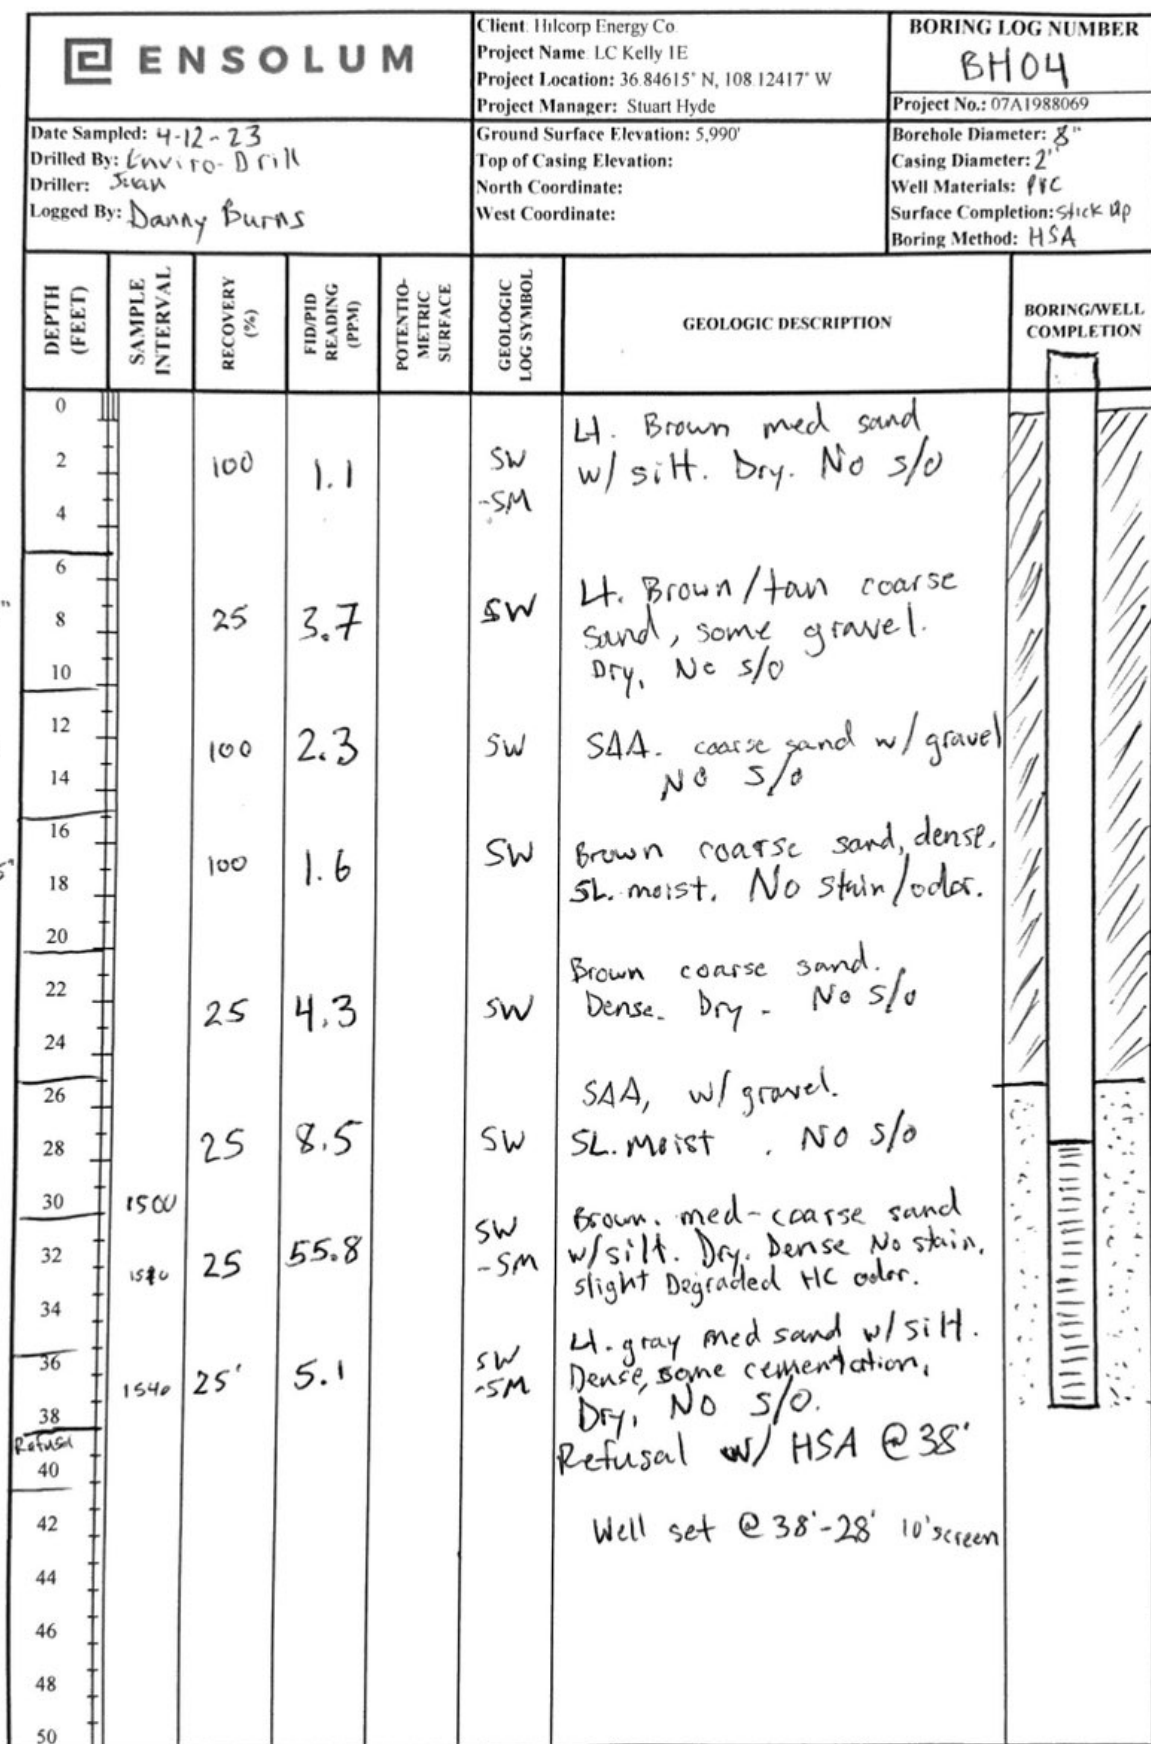 ENSOLUM
Client: Hilcorp Energy Co.
Project Name: LC Kelly 1E
Project Location: 36.84615° N, 108.12417° W
Project Manager: Stuart Hyde
BORING LOG NUMBER
BH04
Project No.: 07A1988069
Date Sampled: 4-12-23
Drilled By: Enviro-Drill
Driller: Juan
Logged By: Danny Burns
Ground Surface Elevation: 5,990'
Top of Casing Elevation:
North Coordinate:
West Coordinate:
Borehole Diameter: 8"
Casing Diameter: 2"
Well Materials: PVC
Surface Completion: Stick Up
Boring Method: HSA
DEPTH (FEET)
SAMPLE INTERVAL
RECOVERY (%)
FID/PID READING (PPM)
POTENTIO-METRIC SURFACE
GEOLOGIC LOG SYMBOL
GEOLOGIC DESCRIPTION
BORING/WELL COMPLETION
0
Lt. Brown med sand
2 100 1.1 SW w/ silt. Dry. No s/o
4 -SM
6
Lt. Brown/tan coarse
8 25 3.7 SW sand, some gravel.
10 Dry, No s/o
12 100 2.3 SW SAA. coarse sand w/ gravel
14 No s/o
16 100 1.6 SW Brown coarse sand, dense,
18 SL. moist. No stain/odor.
20
Brown coarse sand.
22 25 4.3 SW Dense. Dry. No s/o
24
26 SAA, w/ gravel.
28 25 8.5 SW SL. Moist. No s/o
30 1500
SW Brown. med-coarse sand
32 25 55.8 -SM w/silt. Dry. Dense No stain,
slight Degraded HC odor.
34
Lt. gray med sand w/ silt.
36 1540 25' 5.1 SW -SM Dense, some cementation,
38 Dry, No s/o.
Refusal Refusal w/ HSA @ 38'
40
42 Well set @ 38'-28' 10' screen
44
46
48
50